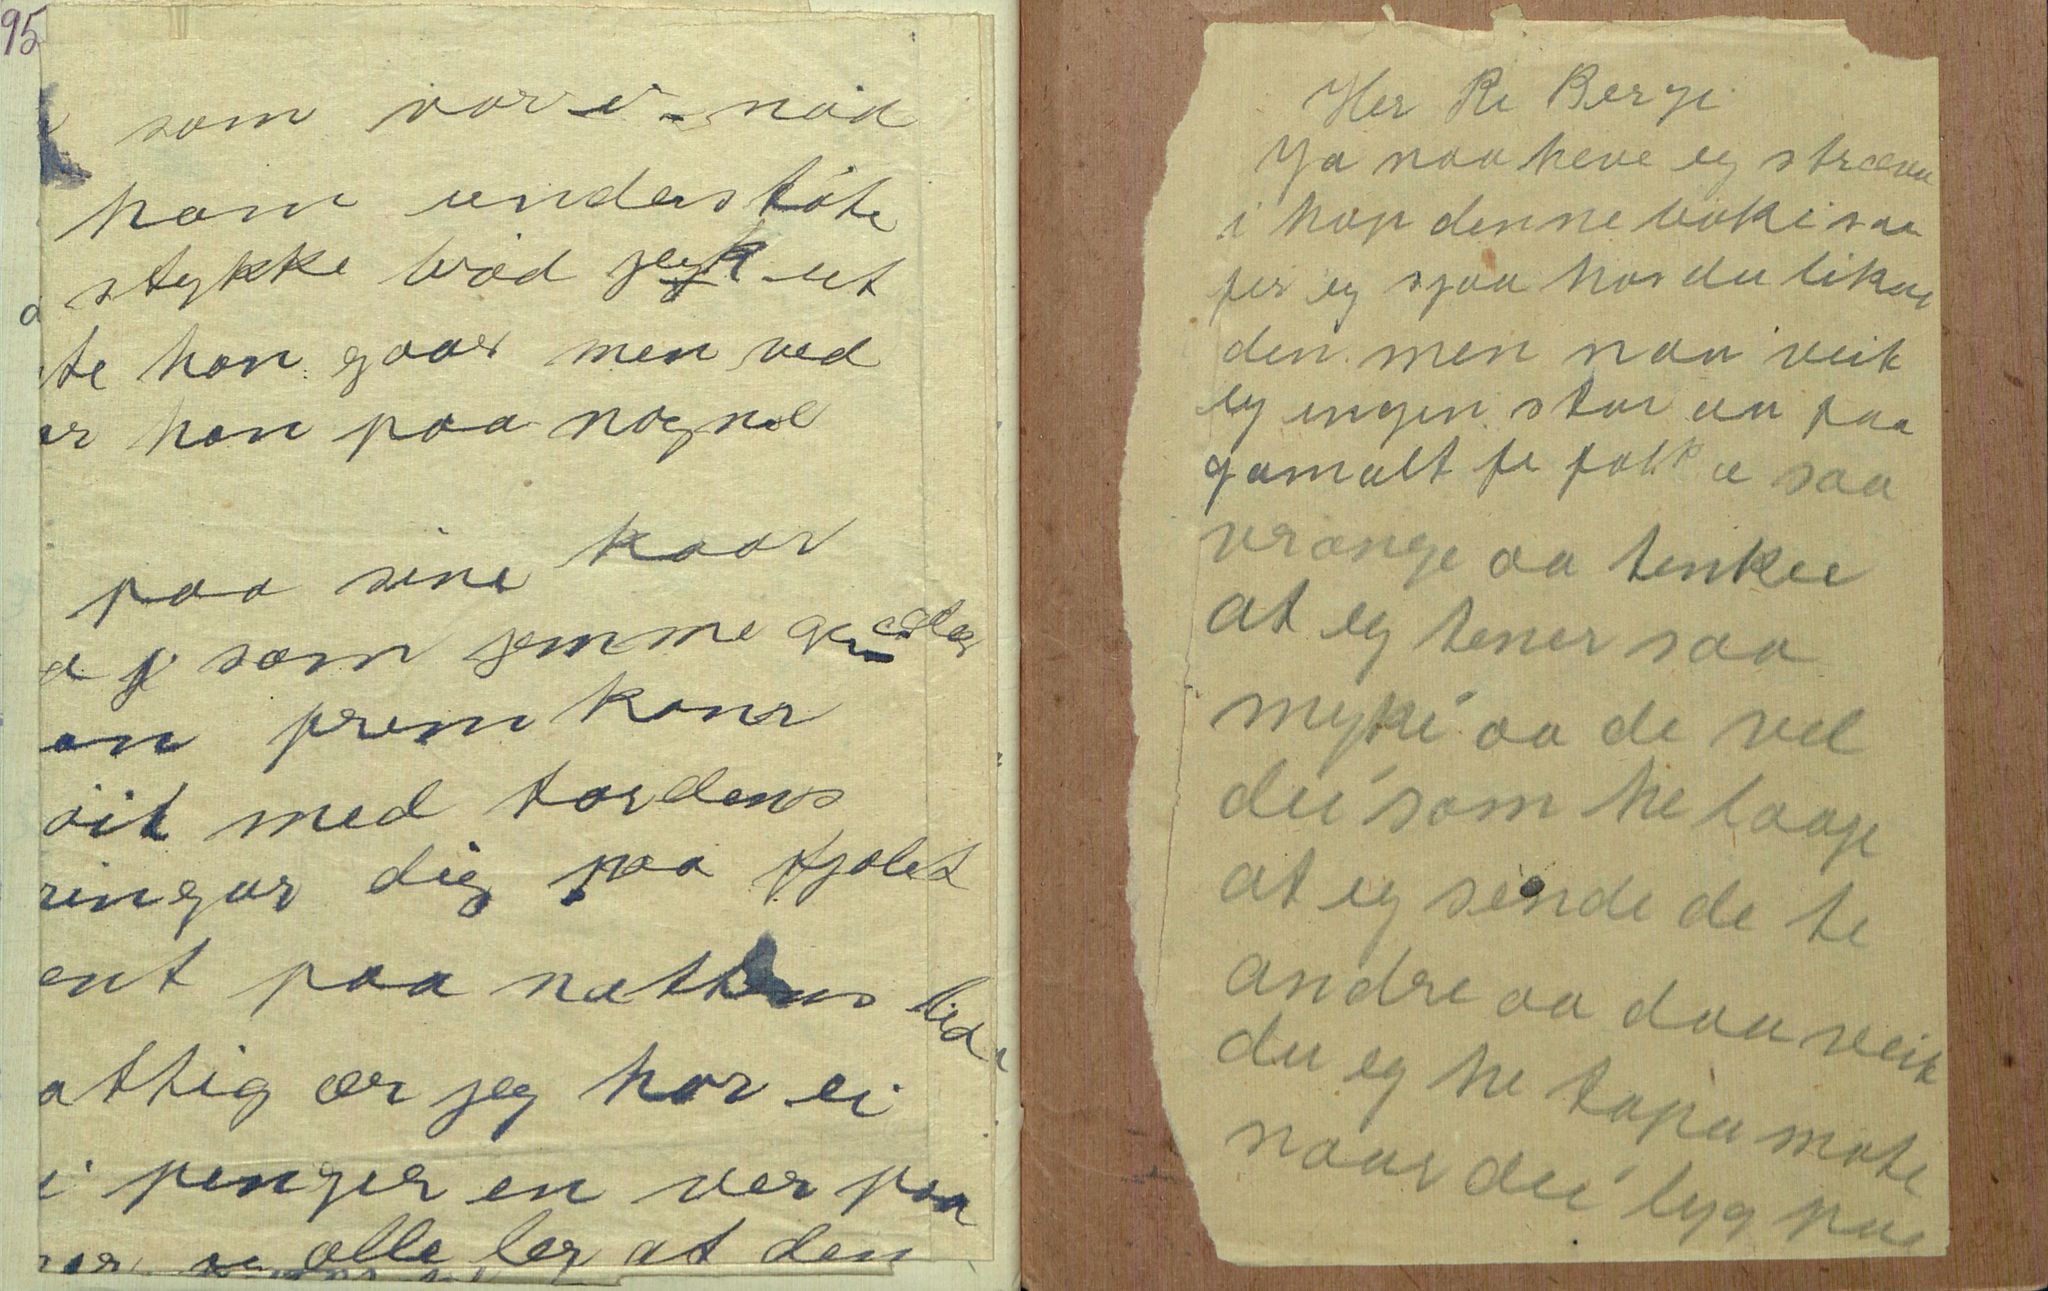 95
som var i nöd
ham understöte
stykke bröd gik ut
te han gaar men ved
er han paa nogne
paa sine kaar
som jemme
an frem kaner
med tordens
ringar dig paa fjolet
ent paa nattens lid
attig ær jeg har ei
i penger en ver paa
alle ler at den
Her Ri Berge
Ya naa heve eg stræva
i hop denne boki saa
fer eg sjaa hos du likar
den men naa veit
eg ingen star aa faa
gamalt fe folk æ saa
vrange aa tenkee
at eg tener saa
myki aa de vel
dei som he laage
at eg sende de te
andre aa daa veit
du eg he tapa mote
naar dei lyg paa